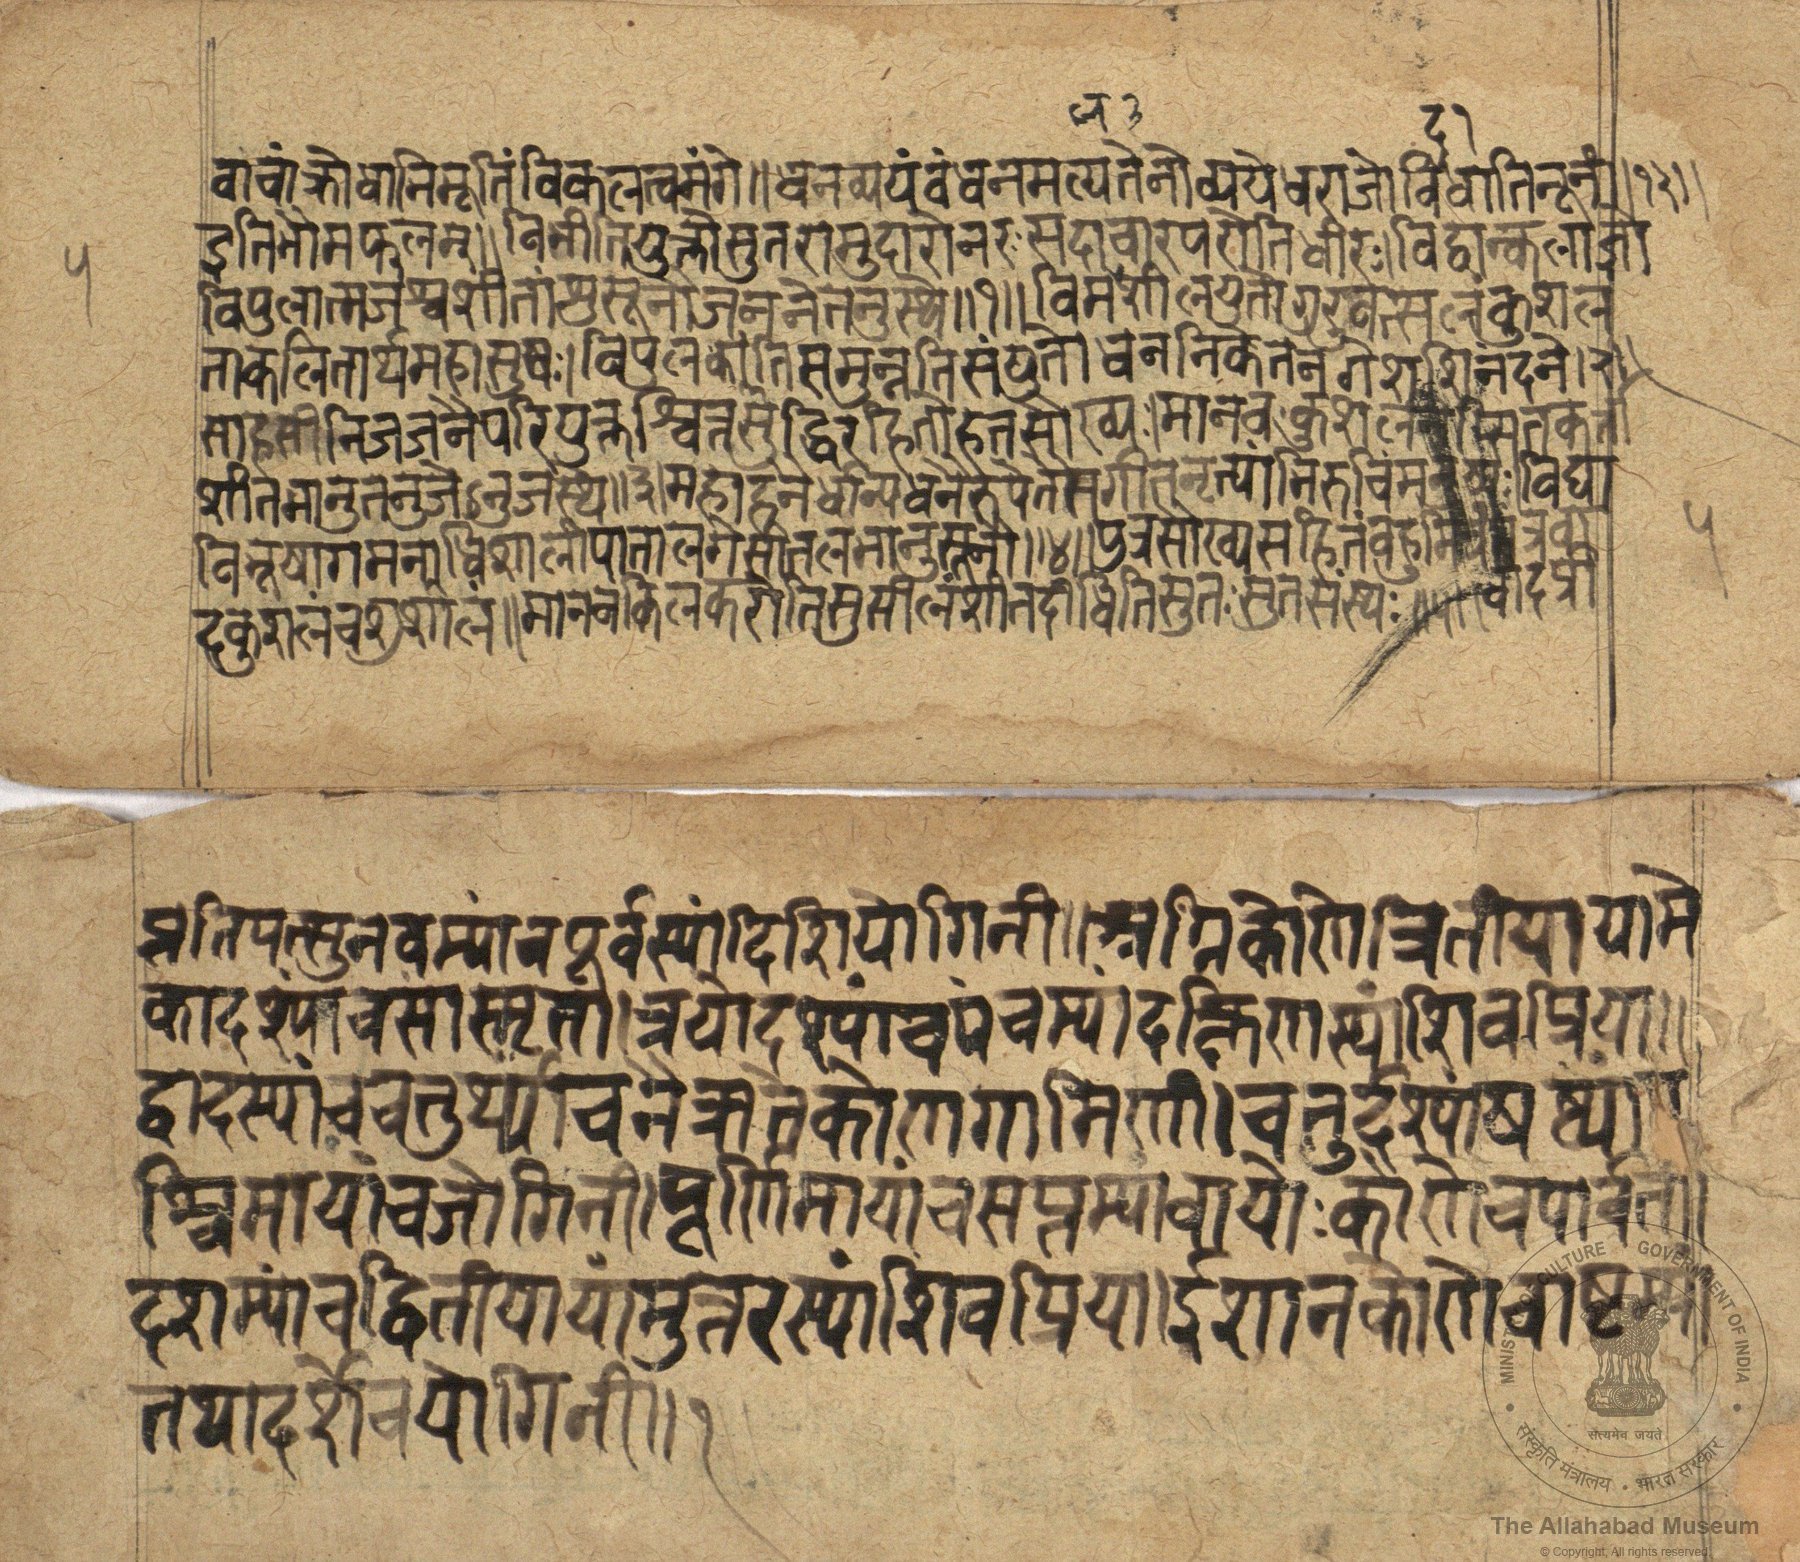 व्य ३ द १
वाचां क्रोधानिमृतिं विकलत्वमंगे ॥ धनव्ययं वंधनमत्यतेनौ व्ययेधराजो विधाति नूनं ॥१२॥
इति भौमफलम् ॥ विनीति युक्तौसुतरामुदारो नरः सदाचारपरोति धीरः । विद्वान्कलाज्ञो
५
विपुलात्मजश्च शीतांशुसूनौ जनने तनुस्थे ॥१॥ विमशीलयुतो गुरुवत्सलं कुशल
ताकलितार्थमहासुखः । विपुलकांति समुन्नति संयुतो धननिकेतनगे शशिनंदने ।२॥
साहसी निजजनैपरियुक्तश्चित्तसुद्धिरहितो हतसौख्यः । मानवः कुशल
शीतभानुतनुजेऽनुजस्थे ॥३॥ महाहनैर्धान्यधनैरुपेतसगीतनृत्यानिरुचिंमनुष्यः । विद्या
५
विभूषागमनाधिशाली पातालगेसीतलभानुसूनौ ॥४॥ पुत्रसौख्यसहितं वहुमि
दकुशलं च शुशीलं ॥ मानवकिलकरोति सुसीलंशीतदीधितिसुतः सुतसंस्थः ॥५॥ वादप्री
प्रतिपत्सु नवम्यां च पूर्वस्यां दिशि योगिनी ॥ अग्निकोणे त्रितीयायामे
कादश्यां च सा स्मृता । त्रयोदश्यां च पंचम्यां दक्षिणस्यां शिवप्रिया ॥
द्वादस्यां च चतुर्थ्यां च नैऋतकोणगामिणी । चतुर्दश्यां षष्ठ्यां प
श्चिमायां च जोगिनी । पूर्णिमायां च सप्तम्यां वायोः कोणे च पार्वती ॥
दशम्यां च द्वितीयायां मुत्तरस्यां शिवप्रिया । ईशानकोणे चाष्टम्यां
तथा दर्शे च योगिनी ॥ १
MINISTRY OF CULTURE GOVERNMENT OF INDIA
सत्यमेव जयते
संस्कृति मंत्रालय • भारत सरकार
The Allahabad Museum
© Copyright, All rights reserved.